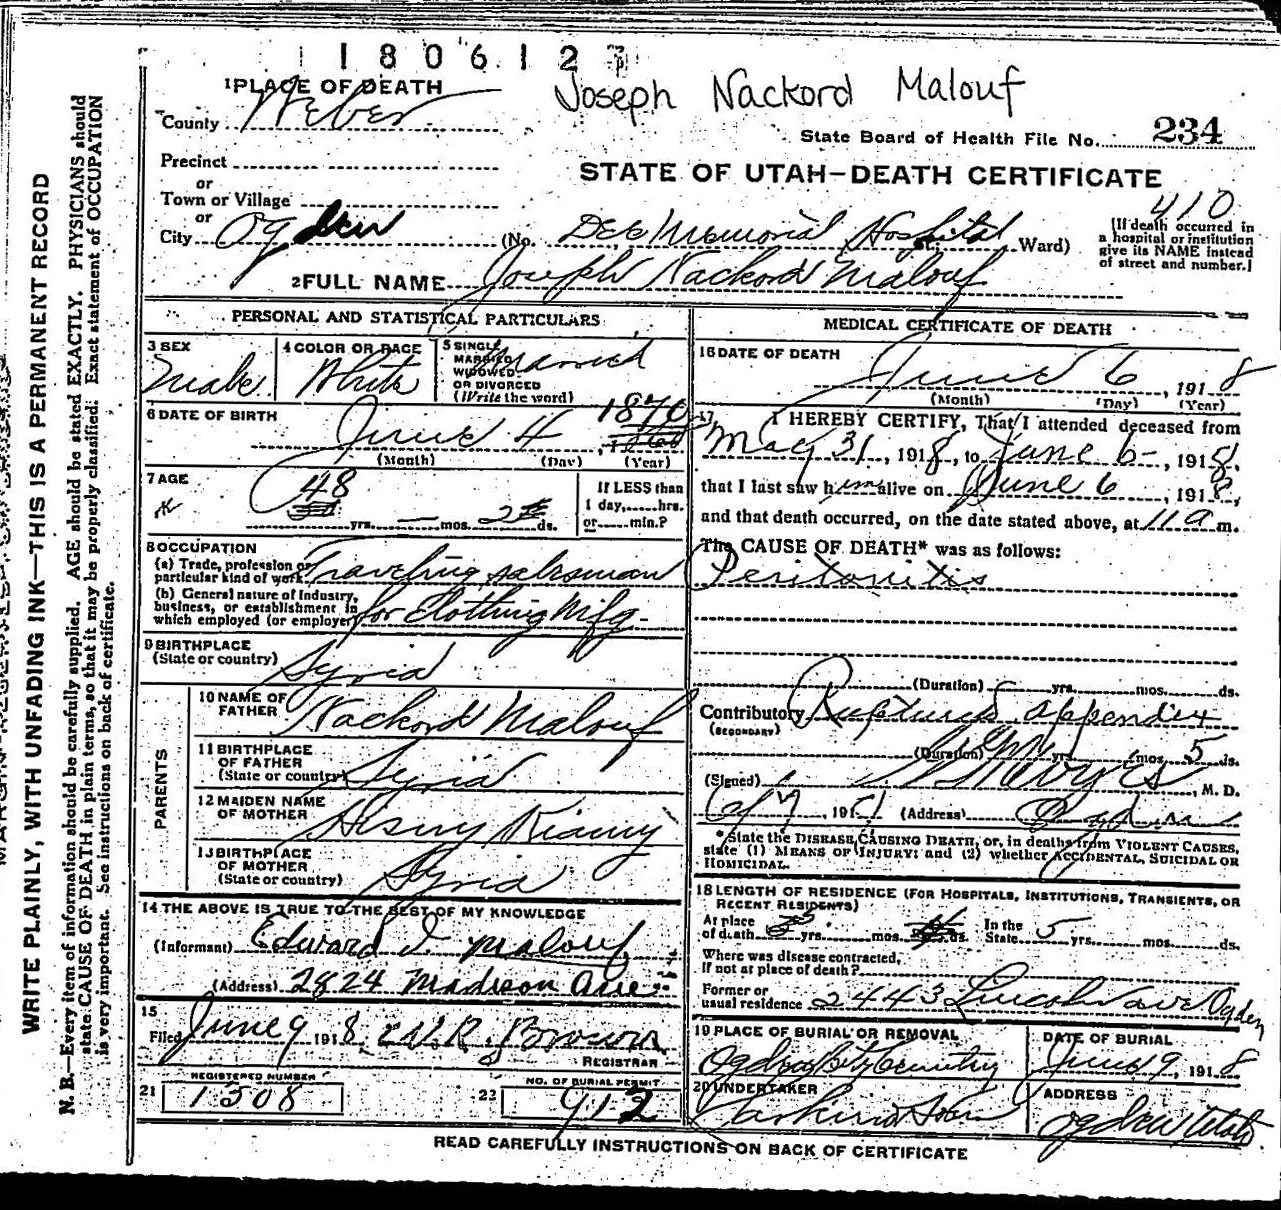 1806123
Joseph Nackord Malouf
1 PLACE OF DEATH
County Weber
State Board of Health File No. 234
Precinct
STATE OF UTAH—DEATH CERTIFICATE
or
Town or Village
or
410
City Ogden (No. Dee Memorial Hospital St.; Ward)
[If death occurred in a hospital or institution give its NAME instead of street and number.]
2 FULL NAME Joseph Nackord Malouf
PERSONAL AND STATISTICAL PARTICULARS
3 SEX Male
4 COLOR OR RACE White
5 SINGLE MARRIED WIDOWED OR DIVORCED (Write the word) Married
6 DATE OF BIRTH June 4, 1870
(Month) (Day) (Year)
7 AGE 48 yrs. — mos. 2 ds.
If LESS than 1 day, hrs. or min.?
8 OCCUPATION
(a) Trade, profession or particular kind of work Traveling salesman
(b) General nature of Industry, business, or establishment in which employed (or employer) for Clothing Mfg.
9 BIRTHPLACE
(State or country) Syria
PARENTS
10 NAME OF FATHER Nackord Malouf
11 BIRTHPLACE OF FATHER (State or country) Syria
12 MAIDEN NAME OF MOTHER
13 BIRTHPLACE OF MOTHER (State or country) Syria
14 THE ABOVE IS TRUE TO THE BEST OF MY KNOWLEDGE
(Informant) Edward D. Malouf
(Address) 2824 Madison Ave.
15
Filed June 9 1918 W. R. Brown
REGISTRAR
21 REGISTERED NUMBER 1308
22 NO. OF BURIAL PERMIT 912
MEDICAL CERTIFICATE OF DEATH
16 DATE OF DEATH
June 6, 1918
(Month) (Day) (Year)
17 I HEREBY CERTIFY, That I attended deceased from
May 31, 1918, to June 6, 1918,
that I last saw him alive on June 6, 1918,
and that death occurred, on the date stated above, at 11 a m.
The CAUSE OF DEATH* was as follows:
Peritonitis
(Duration) yrs. mos. ds.
Contributory Ruptured appendix
(SECONDARY)
(Duration) yrs. mos. 5 ds.
(Signed) , M. D.
6/7, 191 (Address) Ogden
* State the DISEASE CAUSING DEATH, or, in deaths from VIOLENT CAUSES, state (1) MEANS OF INJURY; and (2) whether ACCIDENTAL, SUICIDAL OR HOMICIDAL.
18 LENGTH OF RESIDENCE (FOR HOSPITALS, INSTITUTIONS, TRANSIENTS, OR RECENT RESIDENTS)
At place of death yrs. mos. ds. In the State 5 yrs. mos. ds.
Where was disease contracted, if not at place of death?
Former or usual residence 2443 Lincoln ave Ogden
19 PLACE OF BURIAL OR REMOVAL Ogden City Cemetery
DATE OF BURIAL June 9, 1918
20 UNDERTAKER
ADDRESS Ogden Utah
READ CAREFULLY INSTRUCTIONS ON BACK OF CERTIFICATE
WRITE PLAINLY, WITH UNFADING INK—THIS IS A PERMANENT RECORD
N. B.—Every item of information should be carefully supplied. AGE should be stated EXACTLY. PHYSICIANS should
state CAUSE OF DEATH in plain terms, so that it may be properly classified. Exact statement of OCCUPATION
is very important. See instructions on back of certificate.